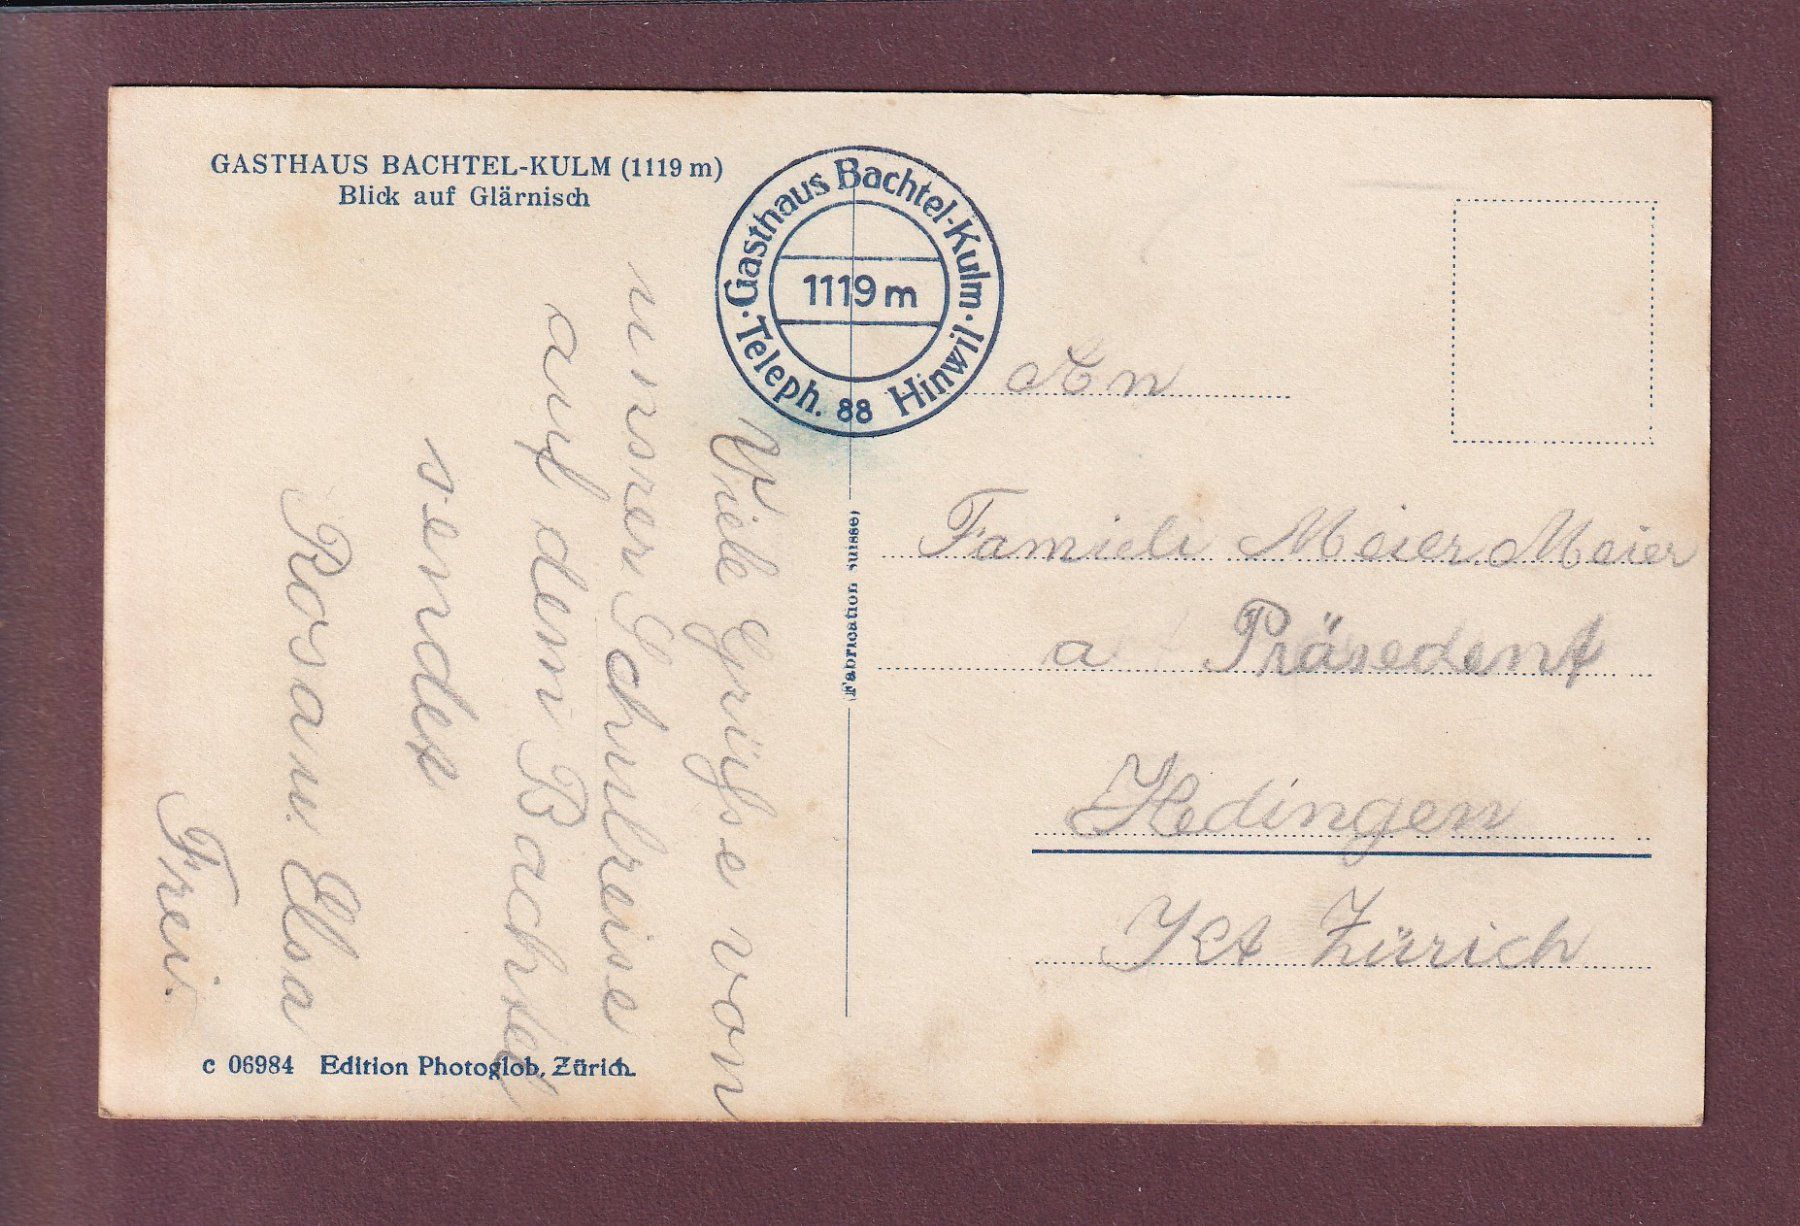 GASTHAUS BACHTEL-KULM (1119 m)
Blick auf Glärnisch
Gasthaus Bachtel-Kulm
1119 m
Teleph. 88 Hinwil
Viele Grühse von
unsrer Schulreise
auf dem Bachtel
senden
Rosa u. Elsa
Frei.
c 06984 Edition Photoglob, Zürich.
(Fabrication suisse)
An
Famieli Meier Meier
a Präsedent
Hedingen
Kt Zürich